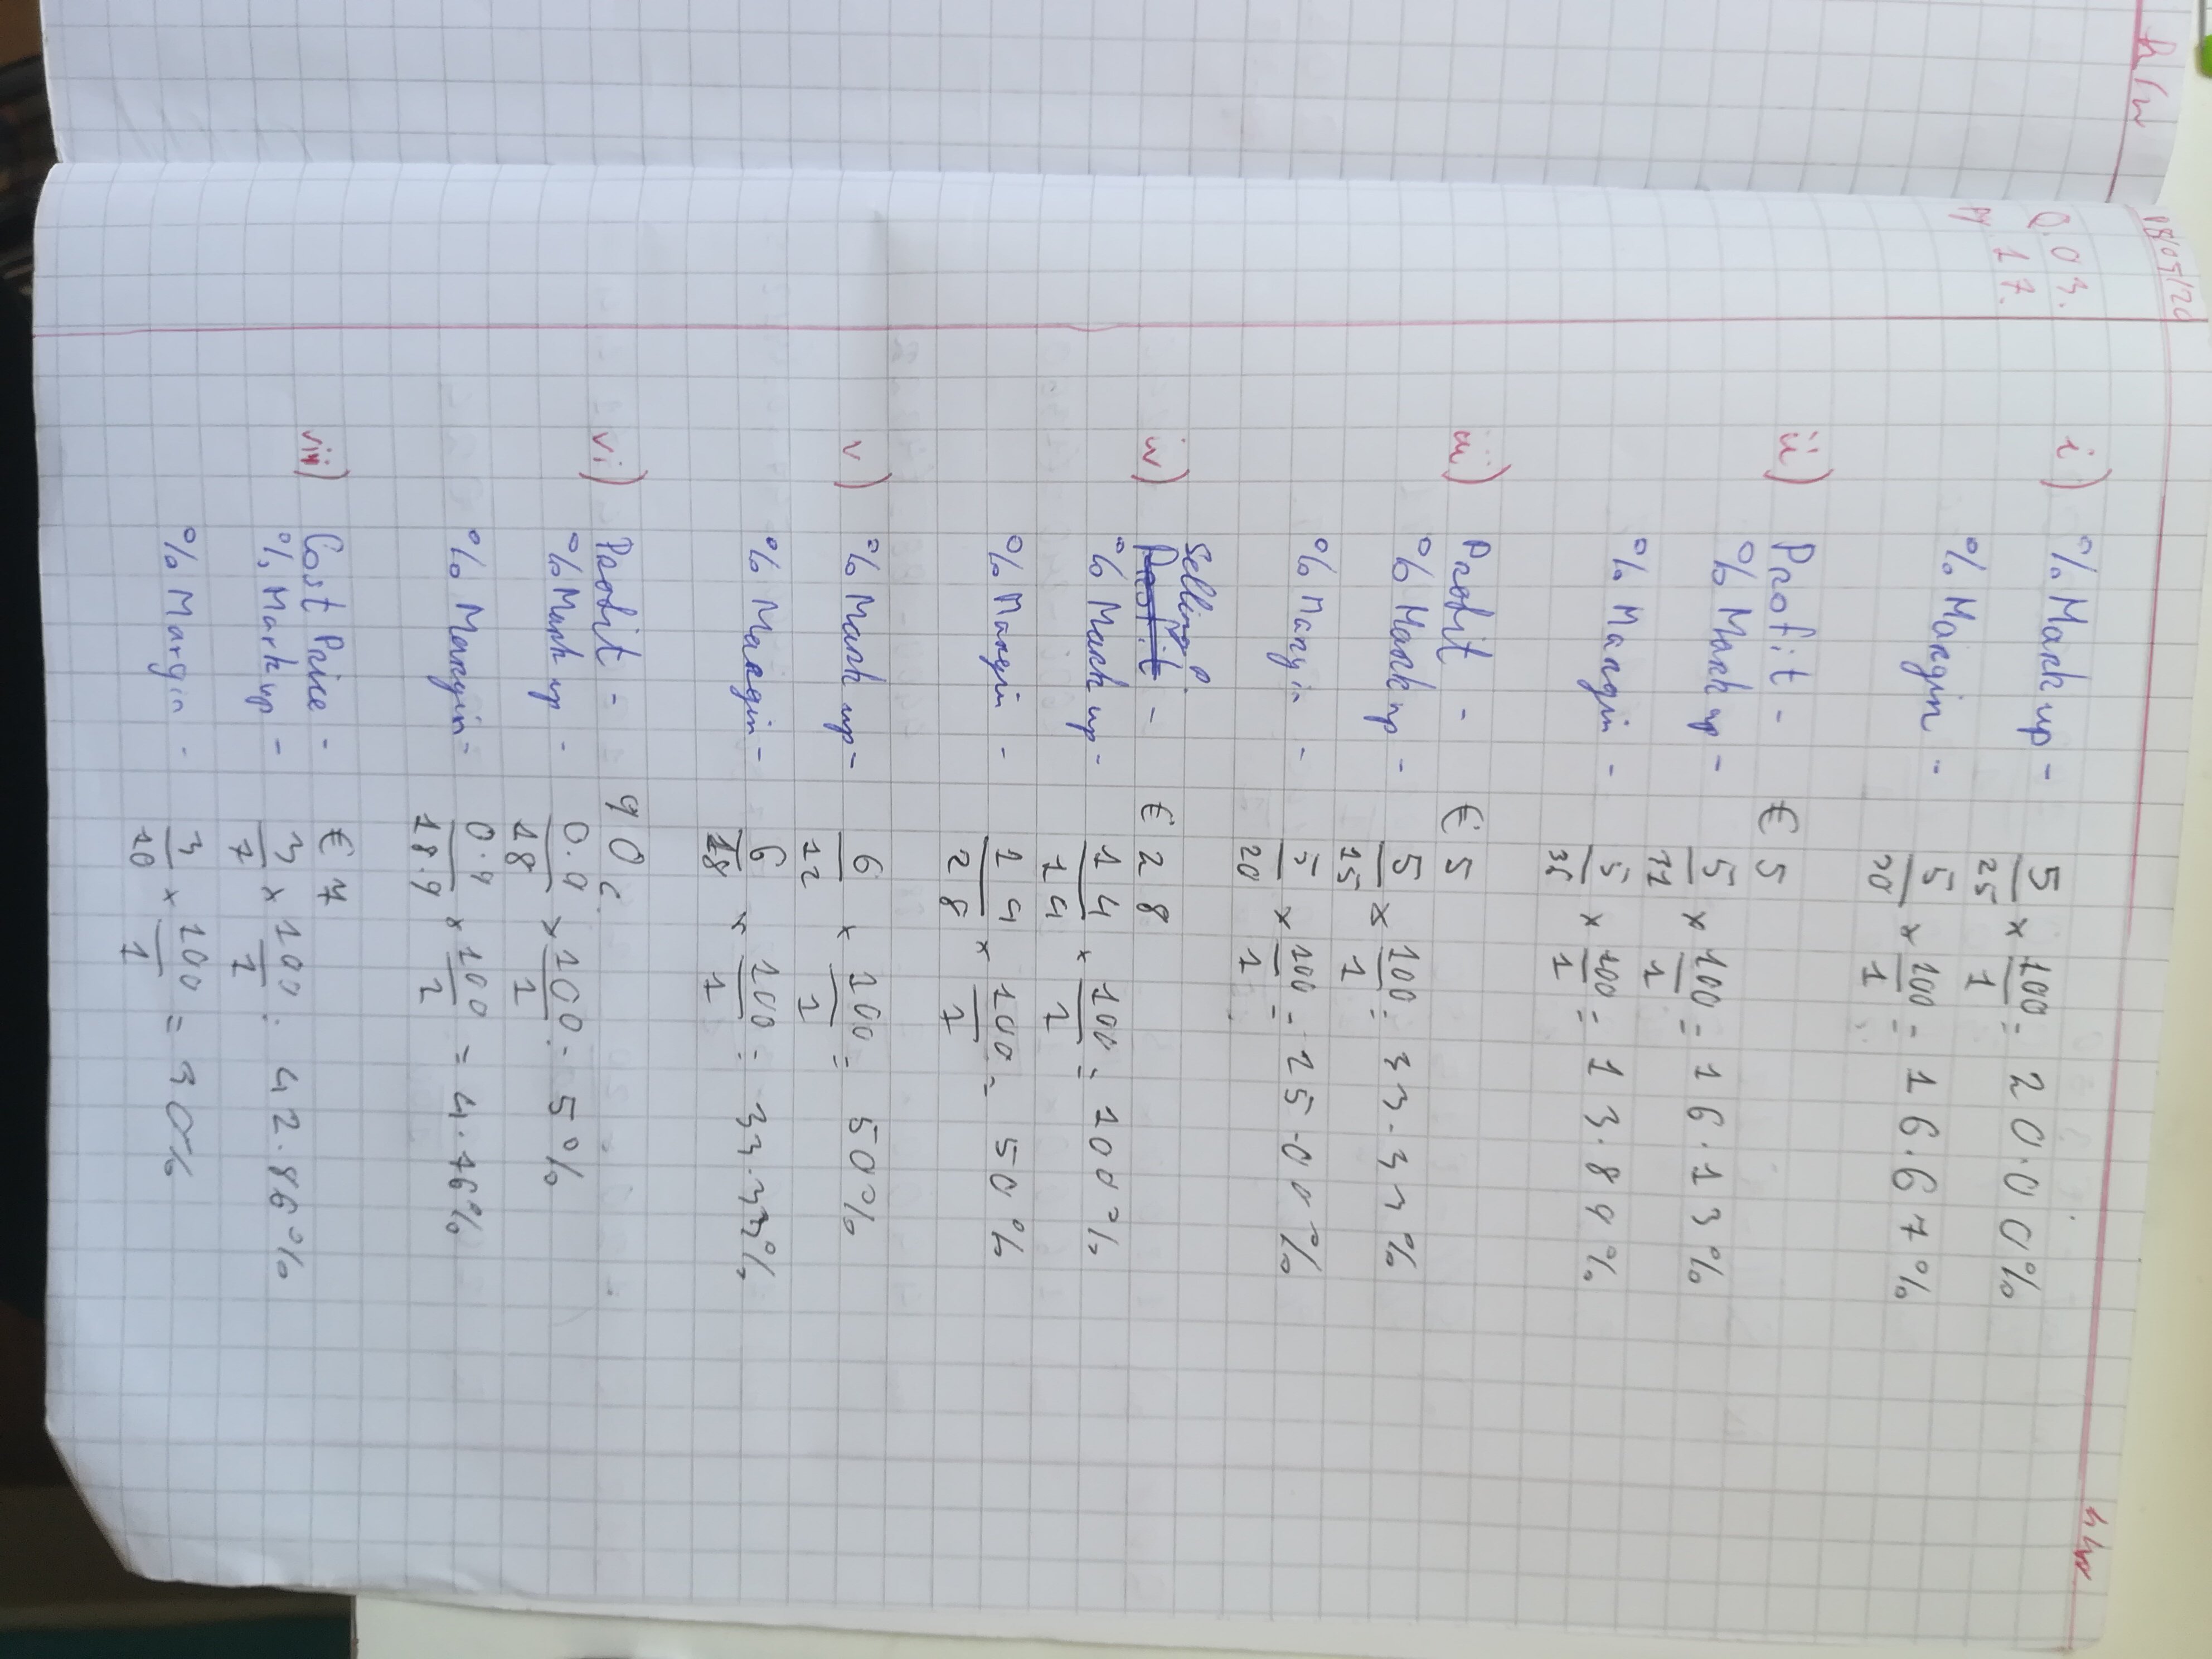 h/w
08/05/20
h/w
Q.03.
i) % Mark up - 5/25 × 100/1 = 20.00%
pg 17.
% Margin - 5/20 × 100/1 = 16.67%
ii) Profit - €5
% Mark up - 5/31 × 100/1 = 16.13%
% Margin - 5/36 × 100/1 = 13.89%
iii) Profit - €5
% Mark up - 5/15 × 100/1 = 33.33%
% Margin - 5/20 × 100/1 = 25.00%
Selling P.
iv) Profit - €28
% Mark up - 14/14 × 100/1 = 100%
% Margin - 14/28 × 100/1 = 50%
v) % Mark up - 6/12 × 100/1 = 50%
% Margin - 6/18 × 100/1 = 33.33%
vi) Profit - 90c
% Mark up - 0.9/18 × 100/1 = 5%
% Margin - 0.9/18.9 × 100/1 = 4.76%
vii) Cost Price - €7
% Mark up - 3/7 × 100/1 = 42.86%
% Margin - 3/10 × 100/1 = 30%